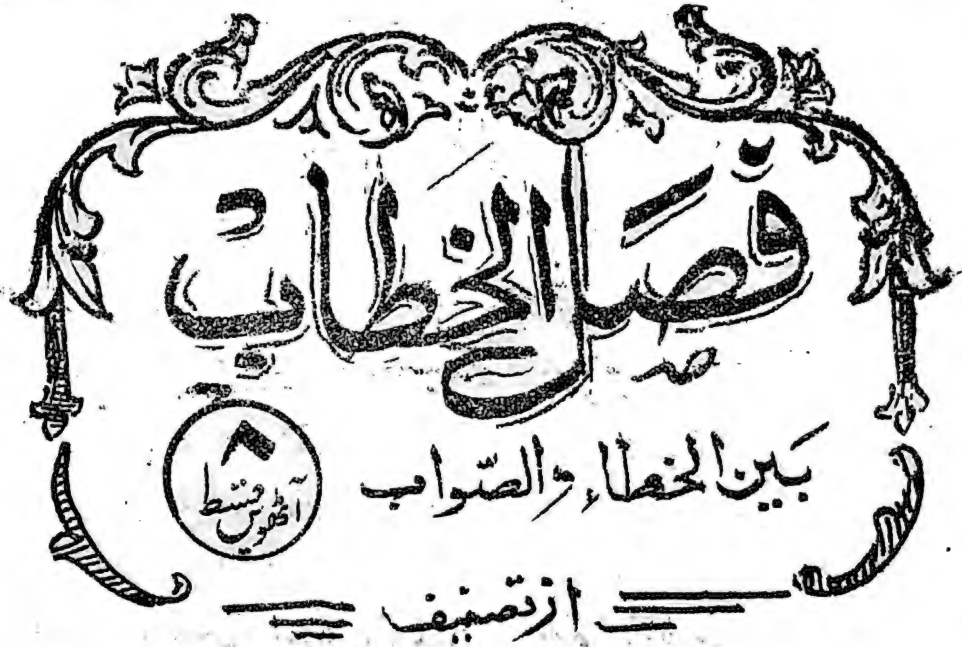 فَصْلُ الْخِطَابِ
بَين الخطاءِ والصّواب
۸
آٹھویں قسط
از تصنیف